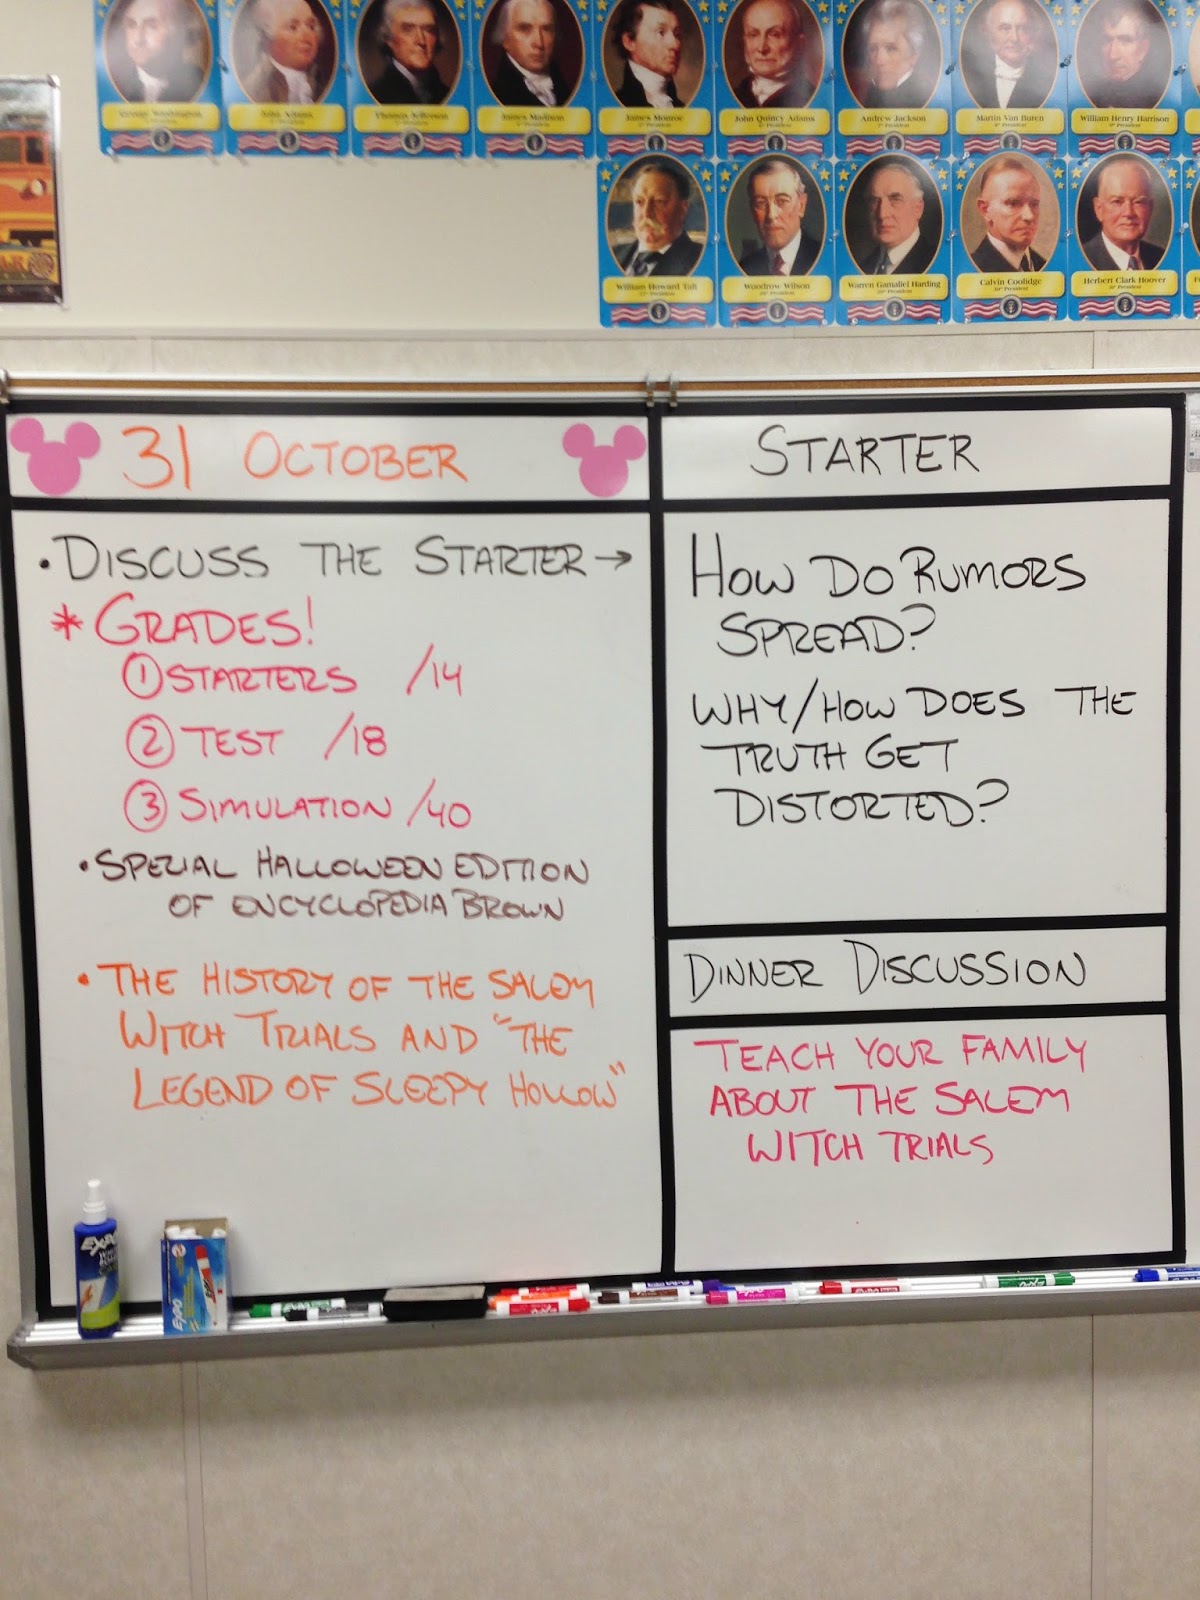 George Washington
John Adams
Thomas Jefferson
James Madison
James Monroe
John Quincy Adams
Andrew Jackson
Martin Van Buren
William Henry Harrison
William Howard Taft
Woodrow Wilson
Warren Gamaliel Harding
Calvin Coolidge
Herbert Clark Hoover
31 OCTOBER
• DISCUSS THE STARTER →
* GRADES!
① STARTERS /14
② TEST /18
③ SIMULATION /40
• SPECIAL HALLOWEEN EDITION
OF ENCYCLOPEDIA BROWN
• THE HISTORY OF THE SALEM
WITCH TRIALS AND "THE
LEGEND OF SLEEPY HOLLOW"
STARTER
HOW DO RUMORS
SPREAD?
WHY/HOW DOES THE
TRUTH GET
DISTORTED?
DINNER DISCUSSION
TEACH YOUR FAMILY
ABOUT THE SALEM
WITCH TRIALS
EXPO
EXPO